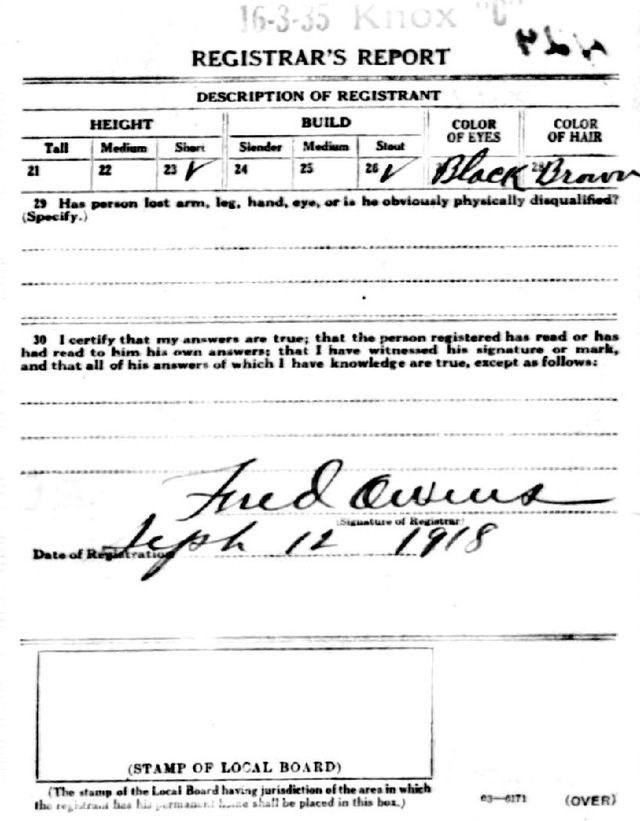 16-3-35 Knox "C"
REGISTRAR'S REPORT
DESCRIPTION OF REGISTRANT
HEIGHT BUILD COLOR OF EYES COLOR OF HAIR
Tall Medium Short Slender Medium Stout
21 22 23 ✓ 24 25 26 ✓ Black 28 Brown
29 Has person lost arm, leg, hand, eye, or is he obviously physically disqualified?
(Specify.)
30 I certify that my answers are true; that the person registered has read or has
had read to him his own answers; that I have witnessed his signature or mark,
and that all of his answers of which I have knowledge are true, except as follows:
Fred Owens
(Signature of Registrar)
Date of Registration Seph 12 1918
(STAMP OF LOCAL BOARD)
(The stamp of the Local Board having jurisdiction of the area in which
the registrant has his permanent home shall be placed in this box.)
63—6171 (OVER)